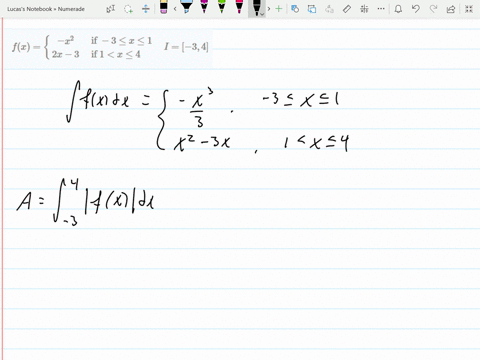 Lucas's Notebook » Numerade
f(x) = { -x² if -3 ≤ x ≤ 1 I = [-3, 4]
2x - 3 if 1 < x ≤ 4
∫f(x)dx = { -x³/3 , -3 ≤ x ≤ 1
x² - 3x , 1 < x ≤ 4
A = ∫₋₃⁴ |f(x)|dx